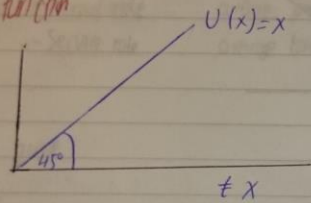 U(x)=x
45°
t x